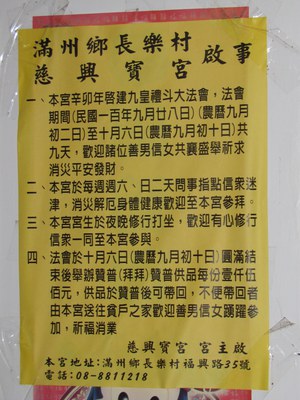 滿州鄉長樂村
慈興寶宮 啟事
一、本宮辛卯年啓建九皇禮斗大法會，法會
期間(民國一百年九月廿八日)(農曆九月
初二日)至十月六日(農曆九月初十日)共
九天，歡迎諸位善男信女共襄盛舉祈求
消災平安發財。
二、本宮於每週週六、日二天問事指點信衆迷
津，消災解厄身體健康歡迎至本宮參拜。
三、本宮宮生於夜晚修行打坐，歡迎有心修行
信衆一同至本宮參與。
四、法會於十月六日(農曆九月初十日)圓滿結
束後舉辦贊普(拜拜)贊普供品每份壹仟伍
佰元，供品於贊普後可帶回，不便帶回者
由本宮送往貧戶之家歡迎善男信女踴躍參
加，祈福消業
慈興寶宮 宮主啟
本宮地址:滿州鄉長樂村福興路35號
電話:08-8811218